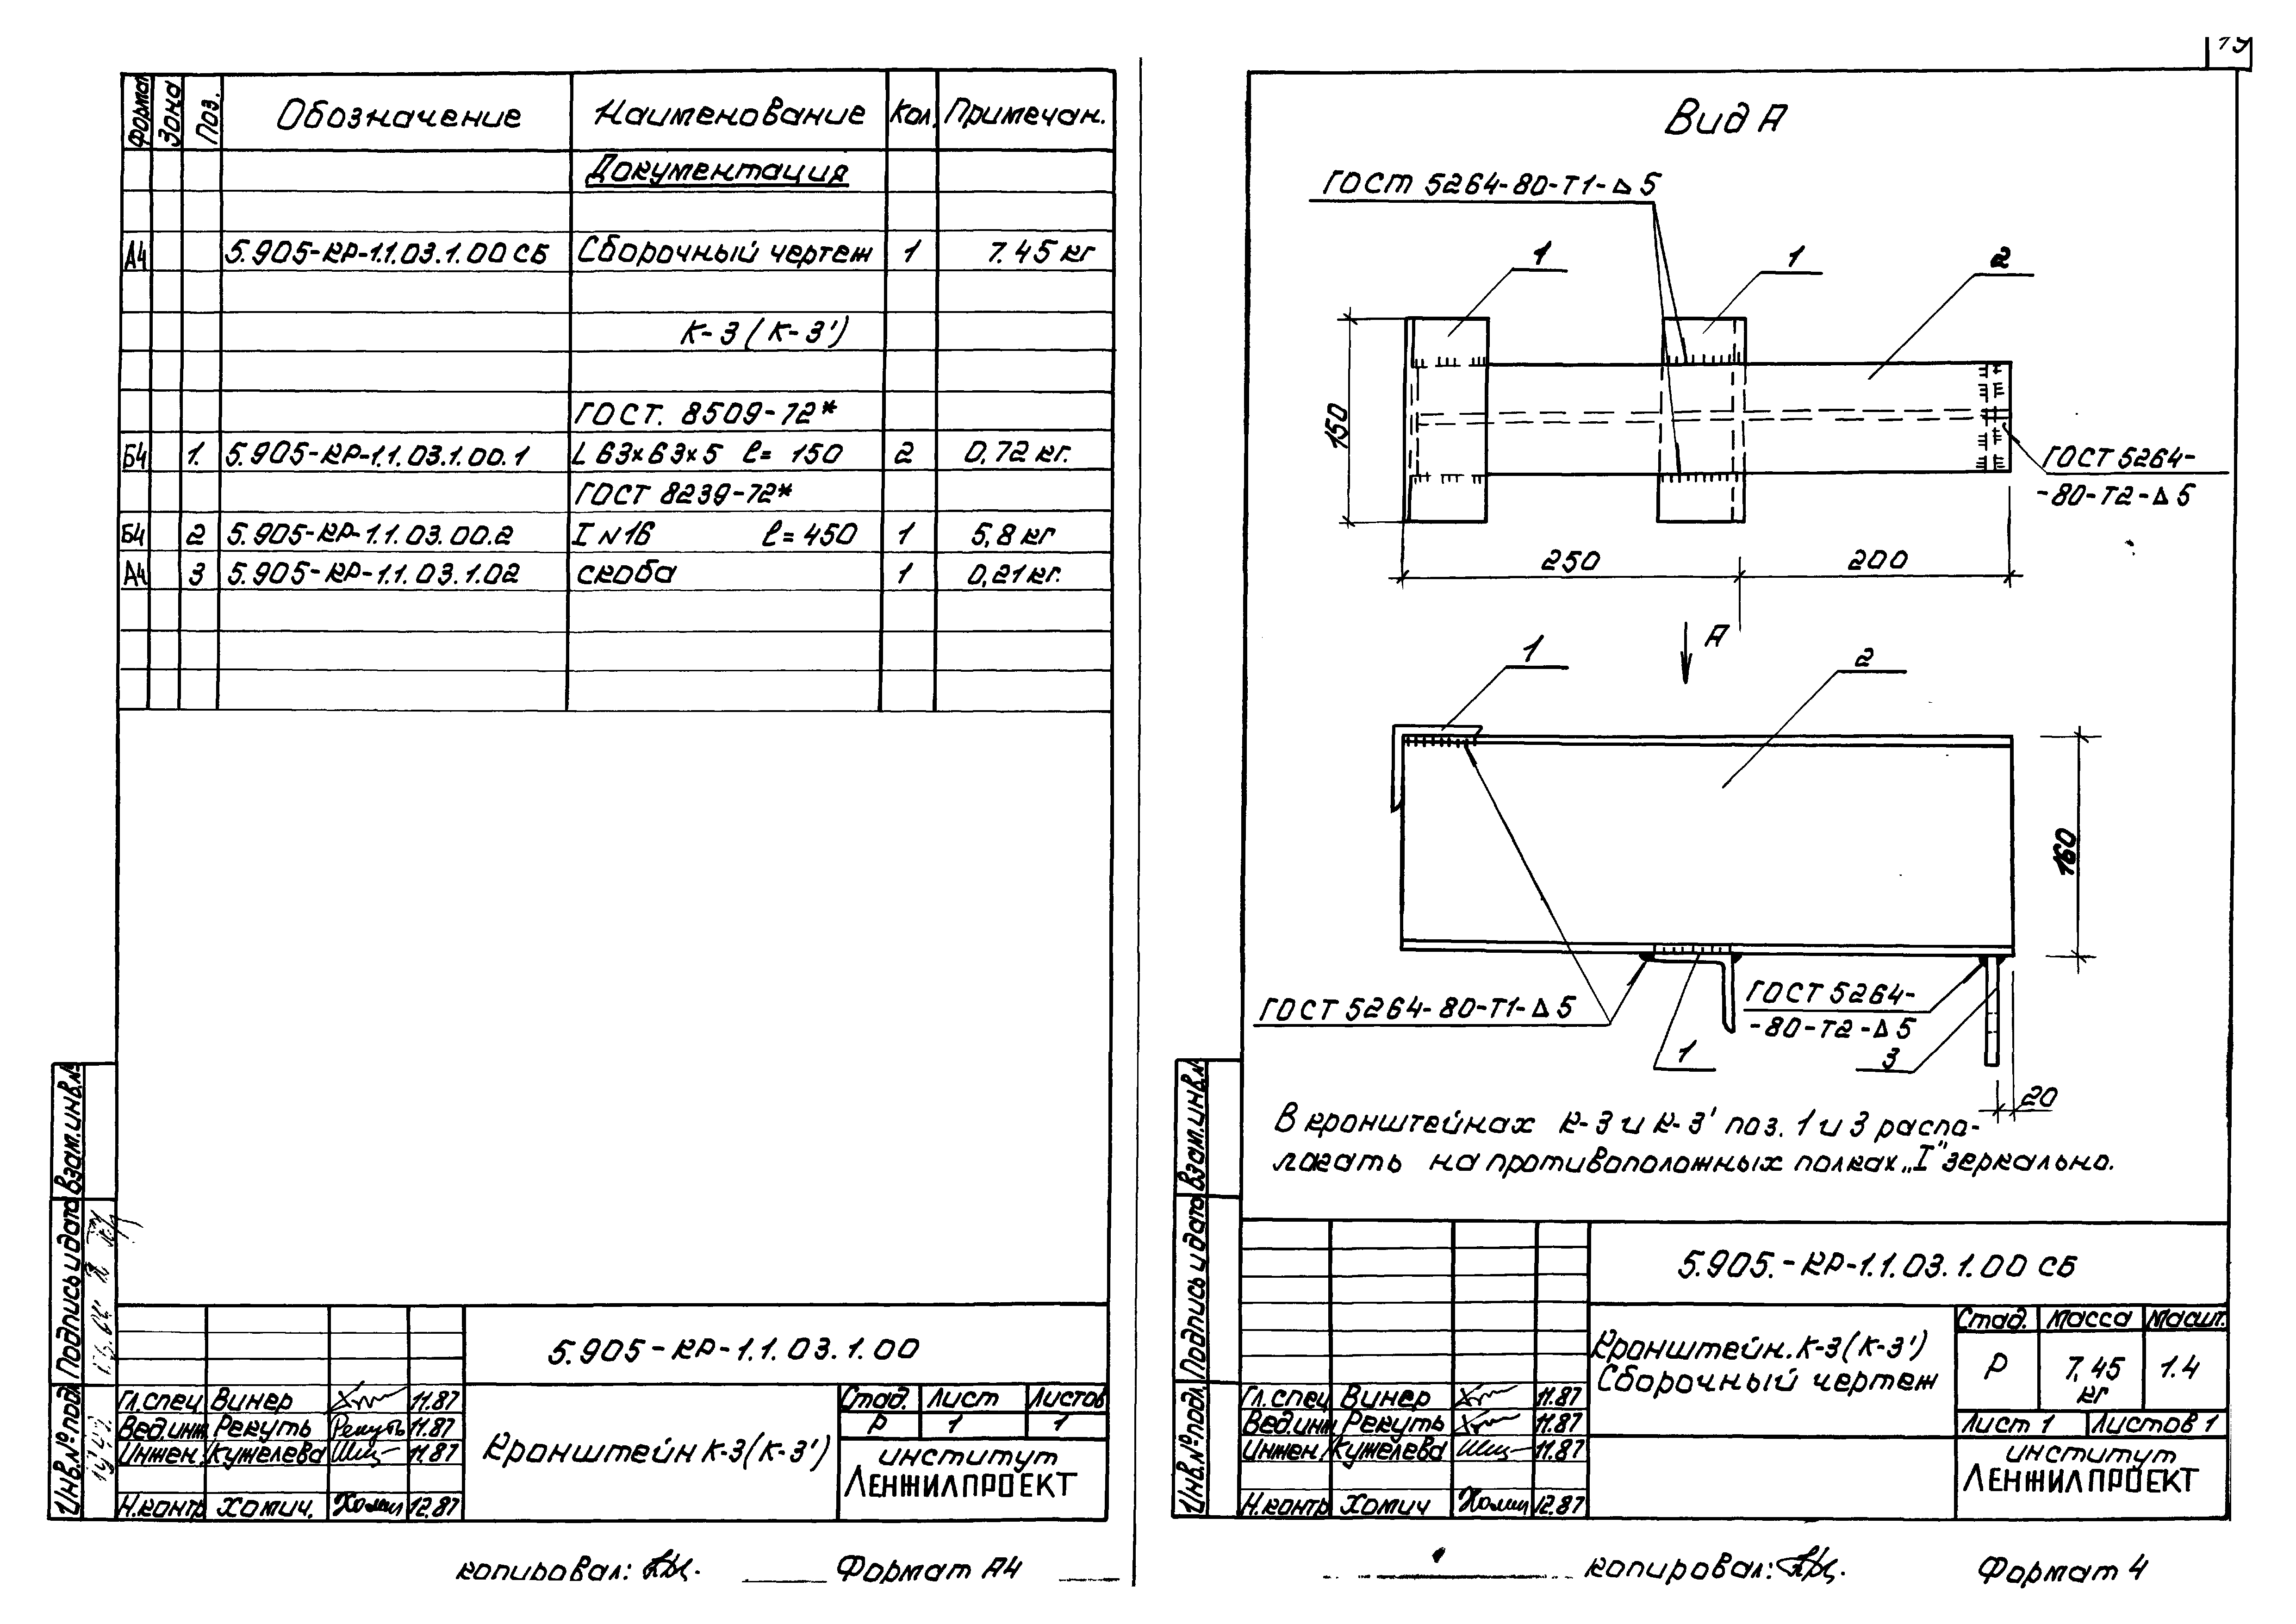 Формат Зона Поз. Обозначение Наименование Кол. Примечан.
Документация
А4 5.905-КР-1.1.03.1.00 СБ Сборочный чертеж 1 7.45 кг
К-3 (К-3')
ГОСТ. 8509-72*
Б4 1. 5.905-КР-1.1.03.1.00.1 L 63×63×5 ℓ= 150 2 0,72 кг.
ГОСТ 8239-72*
Б4 2 5.905-КР-1.1.03.00.2 I N16 ℓ=450 1 5,8 кг
А4 3 5.905-КР-1.1.03.1.02 скоба 1 0,21 кг.
Взам.инв.№
Подпись и дата
Инв.№ подл.
5.905-КР-1.1.03.1.00
Гл.спец. Винер 11.87
Вед.инж. Рекуть Рекуть 11.87
Инжен. Кужелева 11.87
Н.контр. Хомич. 12.87
Кронштейн К-3(К-3')
Стад. Лист Листов
Р 1 1
институт
ЛЕНЖИЛПРОЕКТ
копировал:
Формат А4
Вид А
ГОСТ 5264-80-Т1-Δ5
1
1
2
150
ГОСТ 5264-
-80-Т2-Δ5
250
200
А
1
2
160
ГОСТ 5264-80-Т1-Δ5
ГОСТ 5264-
-80-Т2-Δ5
1
3
20
В кронштейнах К-3 и К-3' поз. 1 и 3 распо-
лагать на противоположных полках „I" зеркально.
Взам.инв.№
Подпись и дата
Инв.№ подл.
5.905.-КР-1.1.03.1.00 СБ
Гл.спец. Винер 11.87
Вед.инж. Рекуть 11.87
Инжен. Кужелева 11.87
Н.контр. Хомич 12.87
Кронштейн.К-3(К-3')
Сборочный чертеж
Стад. Масса Масшт.
Р 7,45 1.4
кг
Лист 1 Листов 1
институт
ЛЕНЖИЛПРОЕКТ
копировал:
Формат 4